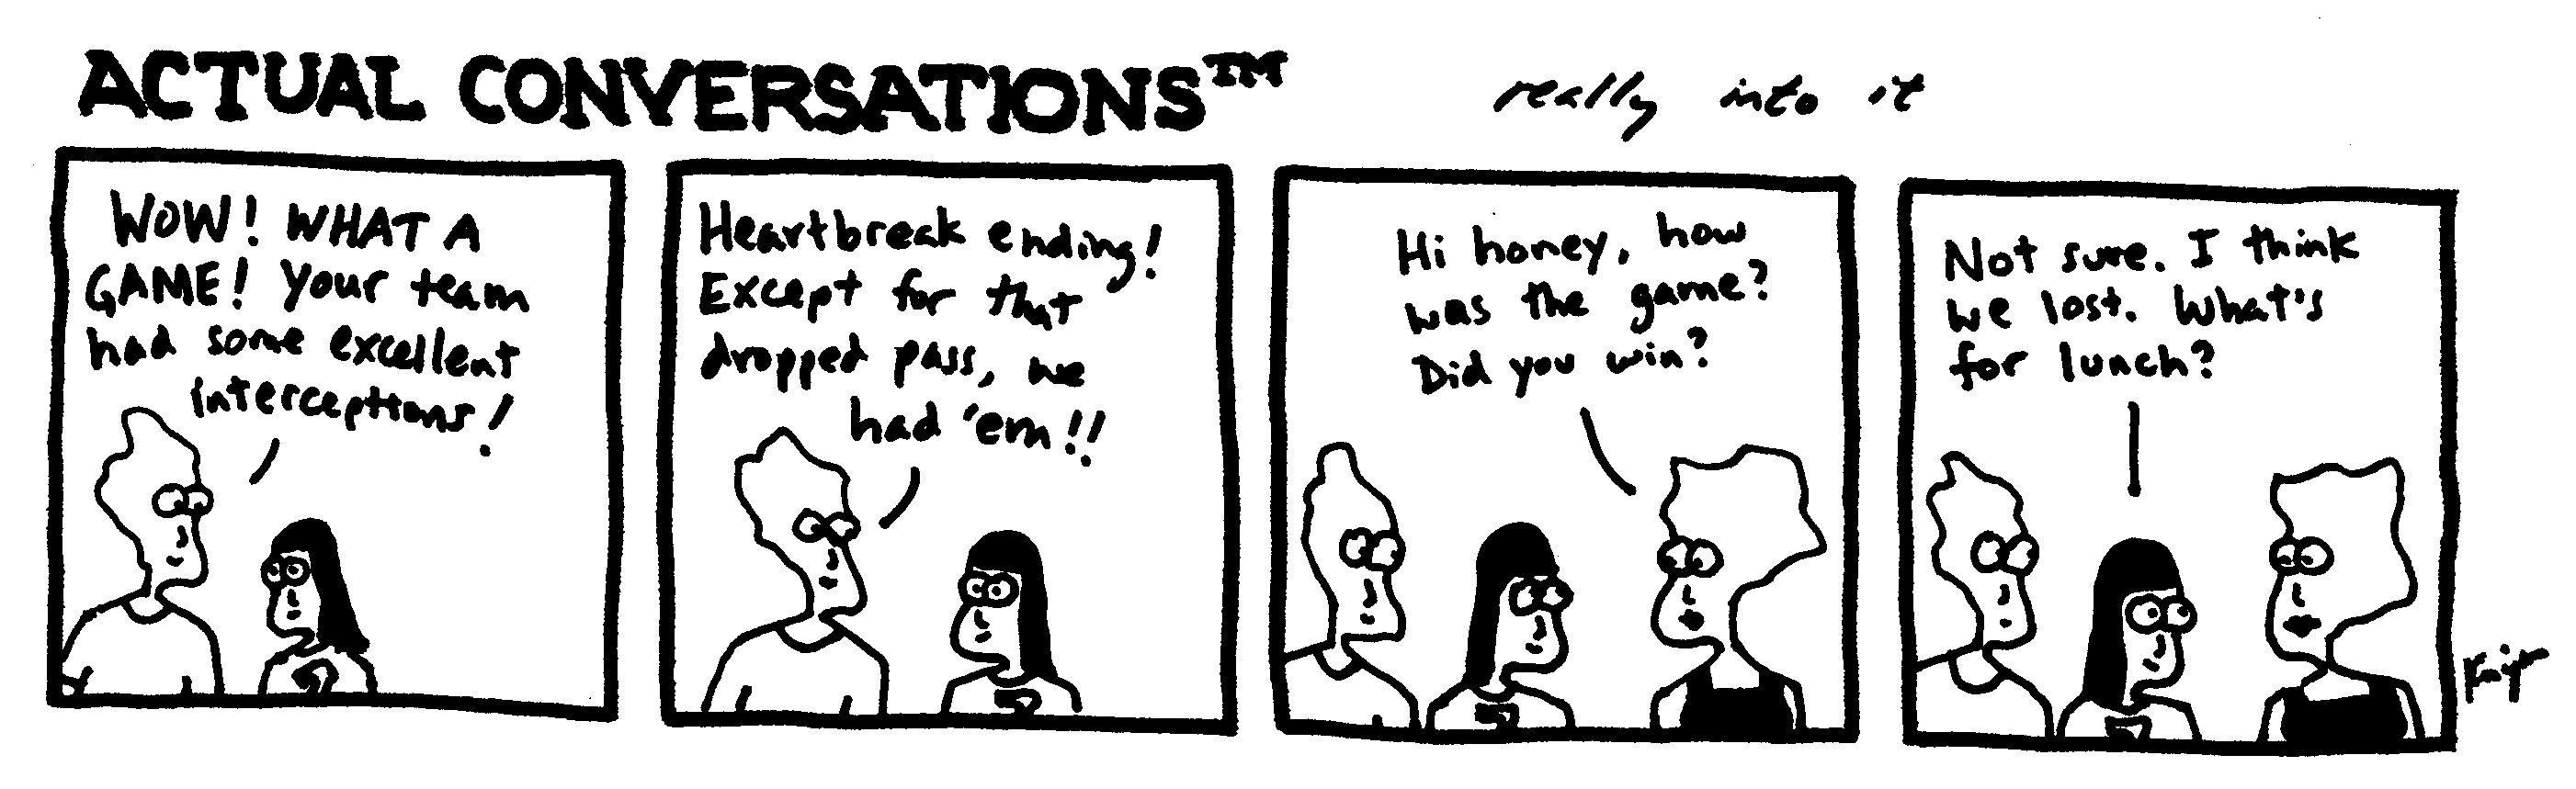 ACTUAL CONVERSATIONS™
really into it
WOW! WHAT A
GAME! Your team
had some excellent
interceptions!
Heartbreak ending!
Except for that
dropped pass, we
had 'em!!
Hi honey, how
was the game?
Did you win?
Not sure. I think
we lost. What's
for lunch?